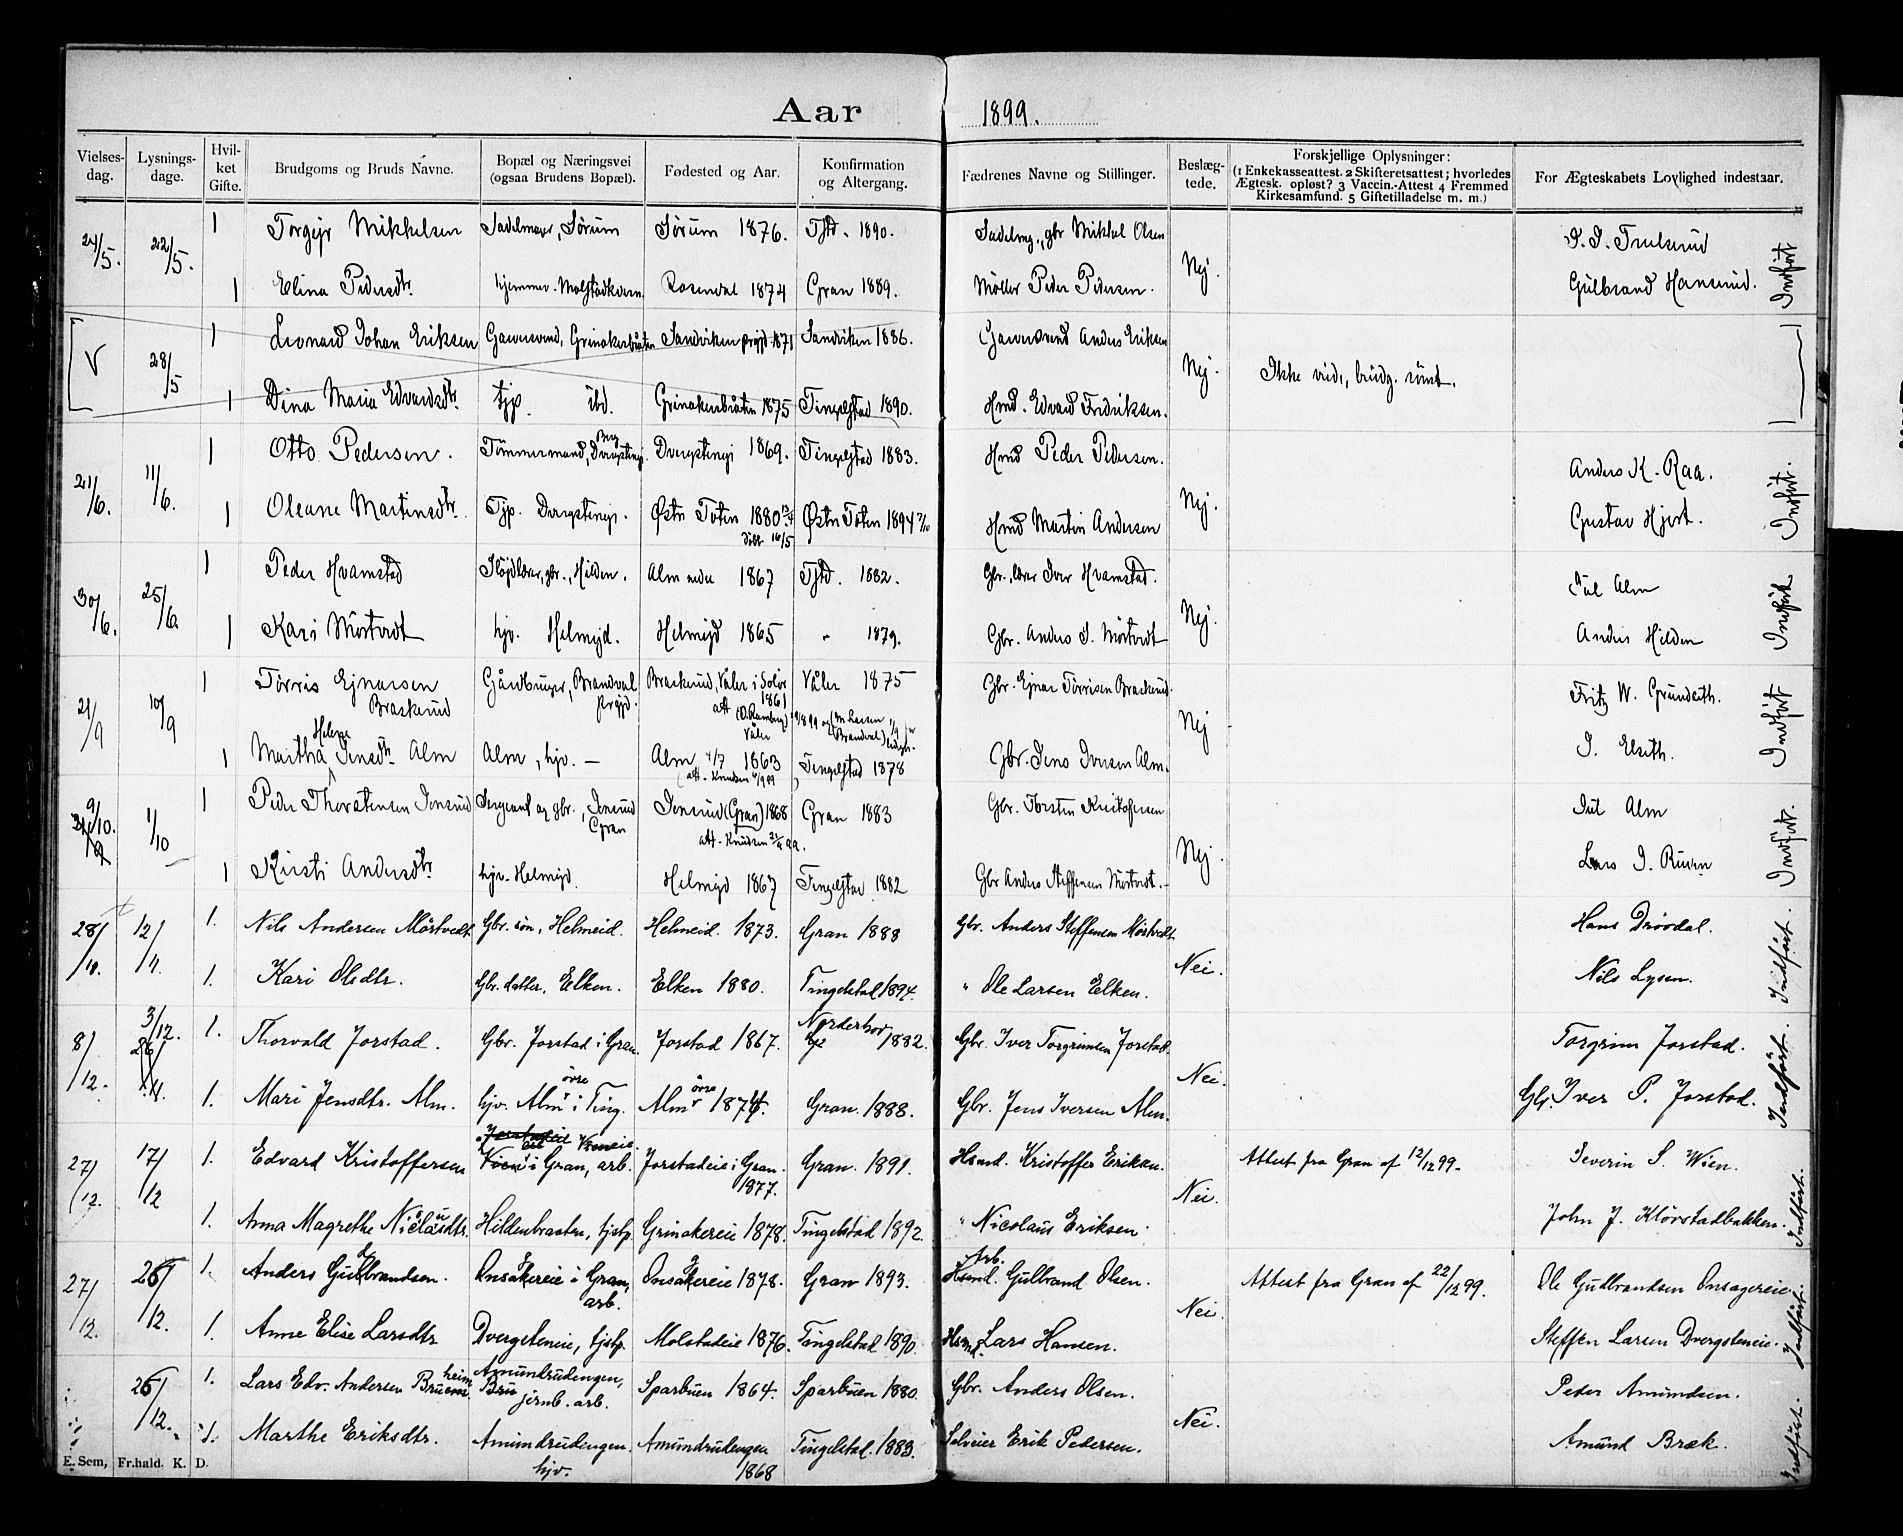 Aar 1899.
Vielses-dag. Lysnings-dage. Hvil-ket Gifte. Brudgoms og Bruds Navne. Bopæl og Næringsvei (ogsaa Brudens Bopæl). Fødested og Aar. Konfirmation og Altergang. Fædrenes Navne og Stillinger. Beslæg-tede. Forskjellige Oplysninger: (1 Enkekasseattest. 2 Skifteretsattest; hvorledes Ægtesk. opløst? 3 Vaccin.-Attest 4 Fremmed Kirkesamfund. 5 Giftetilladelse m. m.) For Ægteskabets Lovlighed indestaar.
24/5. 22/5. 1 Torgejr Mikkelsen Sadelmager, Sørum Sørum 1876. Tjld. 1890. Sadelmg., gbr Mikkel Olsen Nej.
1 Elina Pedersdtr. hjemmev. Molstadkvern. Rosendal 1874 Gran 1889. Møller Peder Pedersen. Gulbrand Hansrud. Indført
V 28/5 1 Leonard Johan Eriksen Garversvend, Grinakerbraaten Sandviken prgjd. 1871 Sandviken 1886. Garversvend Anders Eriksen Nej. Ikke viet, brudg. rømt.
1 Dina Maria Edvardsdtr. tjp. ibd. Grinakerbraaten 1875 Tingelstad 1890. Hmd. Edvard Fredriksen.
21/6. 11/6. 1 Otto Pedersen. Tømmermand, Dvergstenej. Dvergstenej 1869. Tingelstad 1883. Hmd Peder Pedersen. Nej. Anders K. Raa.
1 Oleane Martinsdtr. Tjp. Dvergstenej. Østre Toten 1880 døbt 16/5 Østre Toten 1894 Hmd Martin Andersen Gustav Hjort. Indført.
30/6. 25/6. 1 Peder Hvamstad Sløjdlærer, gbr., Hilden. Alm nedre 1867 Tjld. 1882. Gbr., lærer Iver Hvamstad. Nej. Jul Alm
1 Kari Mørtvedt hjv. Helmejd. Helmejd 1865 " 1879. Gbr. Anders S. Mørtvedt Anders Hilden Indført
21/9 10/9 1 Tørris Ejnarsen Braskerud Gårdbruger, Brandval prgjd. Braskerud, Våler i Solør 1861 Våler 1875 Gbr. Ejnar Tørrisen Braskerud. Nej Fritz W. Grundeith.
1 Martha Helene Jensdtr. Alm Alm, hjv. — Alm 4/7 1863 Tingelstad 1878 Gbr. Jens Iversen Alm. J. Elseth. Indført
9/10. 1/10 1 Peder Thorstensen Jensrud Sergeant og gbr., Jensrud Gran Jensrud (Gran) 1868 Gran 1883 Gbr. Torsten Kristofersen Nej. Jul Alm
1 Kirsti Andersdtr. hjv. Helmejd. Helmejd 1867 Tingelstad 1882 Gbr Anders Steffensen Mørtvedt. Lars J. Ruden Indført.
12/11 1. Nils Andersen Mørtvedt. Gbr. søn, Helmeid. Helmeid. 1873. Gran 1888 Gbr. Anders Steffensen Mørtvedt Nei. Hans Drøvdal.
1. Kari Olsdtr. Gbr. datter, Elken. Elken 1880. Tingelstad 1894. " Ole Larsen Elken. Nils Lysen. Indført.
8/12. 3/12. 1. Thorvald Jorstad. Gbr. Jorstad i Gran. Jorstad 1867. Norderhov 1882. Gbr. Iver Torgrimsen Jorstad. Nei. Torgrim Jorstad.
1. Mari Jensdtr. Alm. hjv. Alm øvre i Ting. Alm øvre 1874. Gran. 1888. Gbr. Jens Iversen Alm. Iver P. Jorstad. Indført.
27/12. 17/12 1. Edvard Kristoffersen i Gran, arb. Jorstadeie i Gran. 1877. Gran. 1891. Hsmd. Kristoffer Eriksen. Nei. Attest fra Gran af 12/12 99. Severin S. Wien.
1. Anna Magrethe Nicolausdtr. Hildenbraaten, tjstp. Grinakereie 1878. Tingelstad 1892. " Nicolaus Eriksen. John J. Klørstadbakken. Indført.
27/12. 26/12. 1. Anders Gulbrandsen. Onsakereie i Gran, arb. Onsakereie 1878. Gran 1893. Arb. Gulbrand Olsen. Nei. Attest fra Gran af 22/12 99. Ole Gudbrandsen Onsagereie.
1. Anne Elise Larsdtr Dvergsteneie, tjstp. Molstadeie 1876. Tingelstad 1890. Hsmd. Lars Hansen. Steffen Larsen Dvergsteneie. Indført.
26/12. 1. Lars Edv. Andersen Bruheim Amundrudengen, jernb. arb. Sparbuen 1864. Sparbuen 1880. Gbr. Anders Olsen. Nei. Peder Amundsen.
1. Marthe Eriksdtr. Amundrudengen. hjv. Amundrudengen 1868 Tingelstad. 1883. Selveier Erik Pedersen. Amund Bræk. Indført.
E. Sem, Fr.hald. K. D.